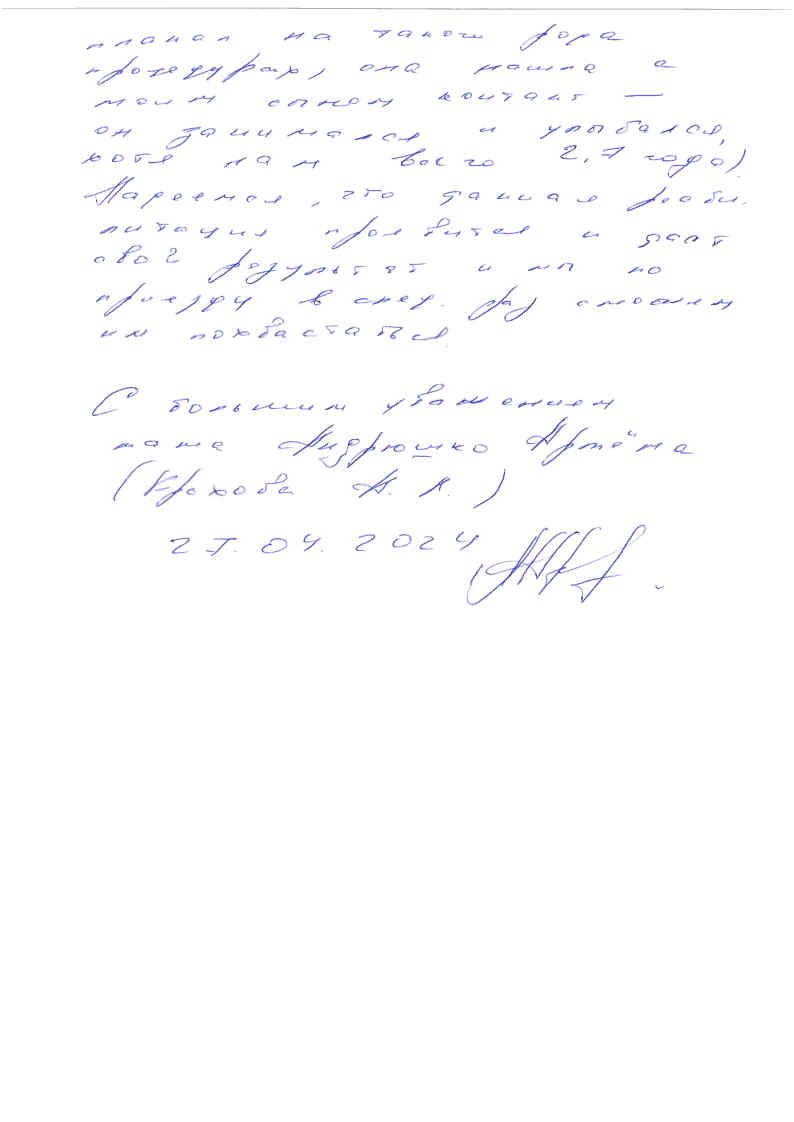 плакал на такого рода
процедурах, она нашла с
моим сыном контакт —
он занимался и улыбался,
хотя нам всего 2,7 года)
Надеемся, что данная реаби-
литация проявится и даст
свой результат и мы по
приезду в след. раз сможем
им похвастаться.
С большим уважением
мама Андрюшко Артёма
(Крохова А. А.)
25.04.2024